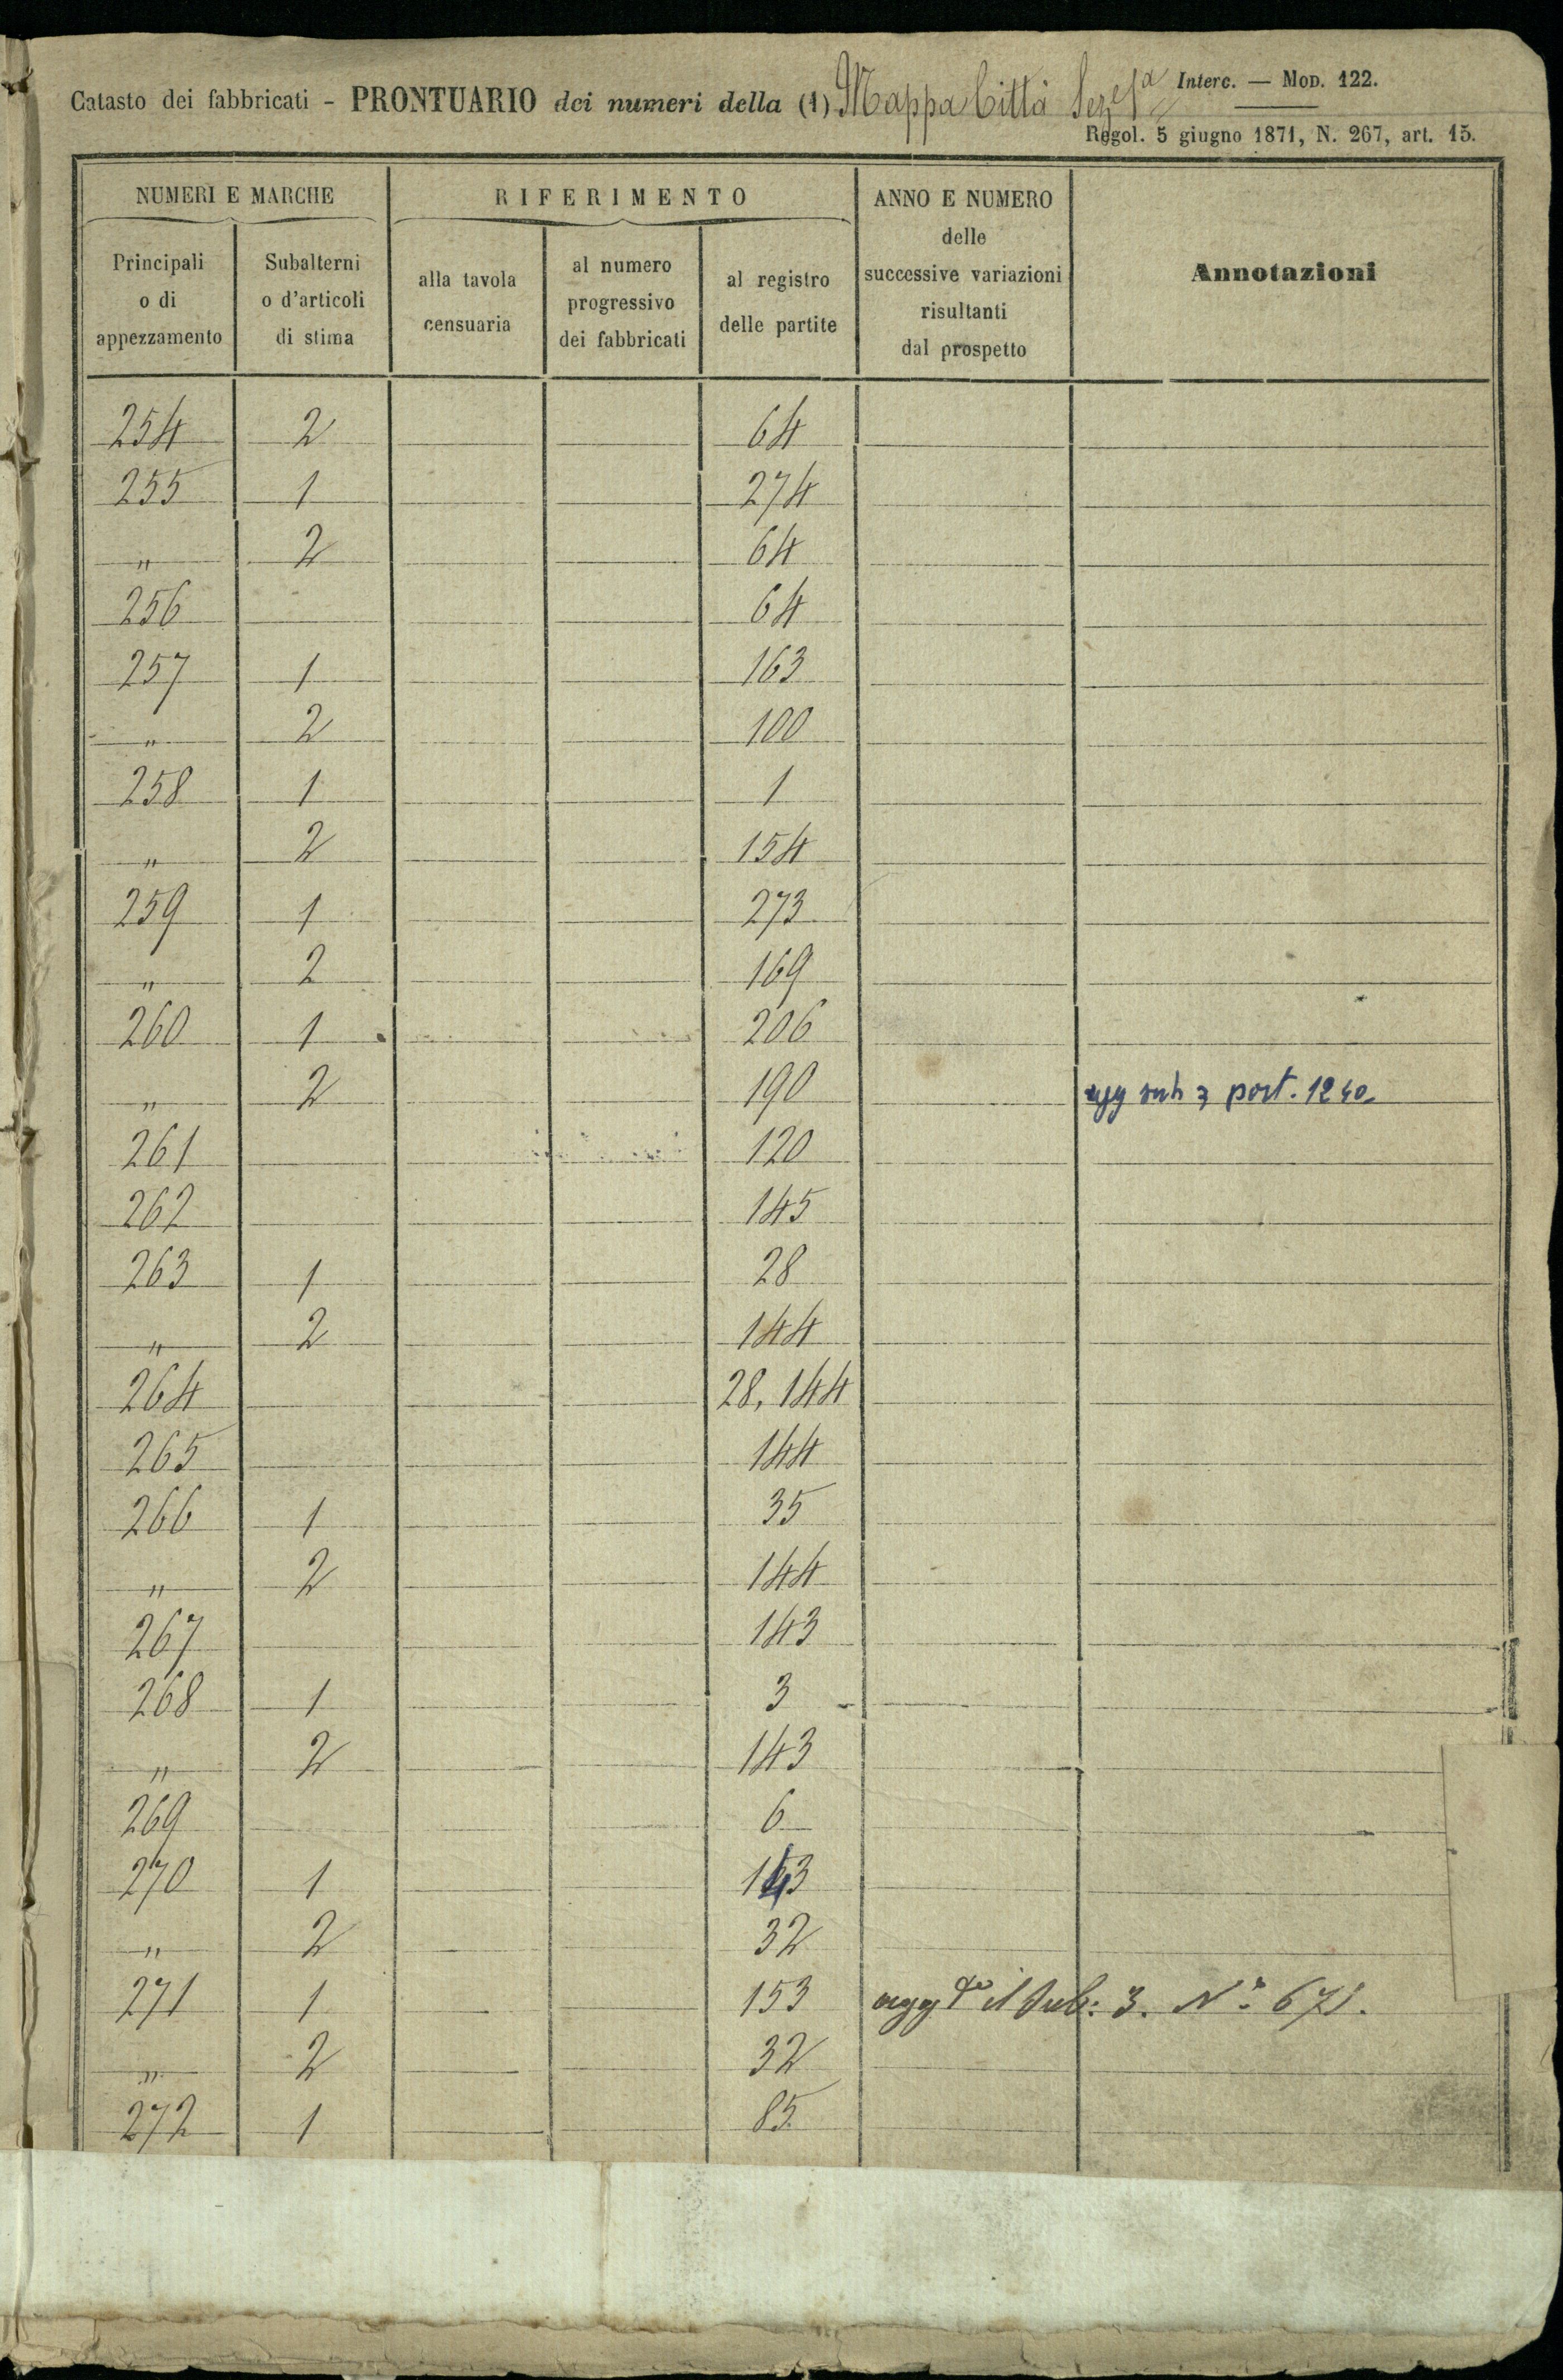 Catasto dei fabbricati - PRONTUARIO dei numeri della (1) Mappa Città Interc. — Mod. 122.
Regol. 5 giugno 1871, N. 267, art. 15.
NUMERI E MARCHE RIFERIMENTO ANNO E NUMERO delle successive variazioni risultanti dal prospetto Annotazioni
Principali o di appezzamento Subalterni o d'articoli di stima alla tavola censuaria al numero progressivo dei fabbricati al registro delle partite
254 2 64
255 1 274
„ 2 64
256 64
257 1 163
„ 2 100
258 1 1
„ 2 154
259 1 273
„ 2 169
260 1 206
„ 2 190 agg sub 3 part. 1240
261 120
262 145
263 1 28
„ 2 144
264 28, 144
265 144
266 1 35
„ 2 144
267 143
268 1 3
„ 2 143
269 6
270 1 143
„ 2 32
271 1 153 agg.to il Sub: 3. N° 671.
„ 2 32
272 1 85